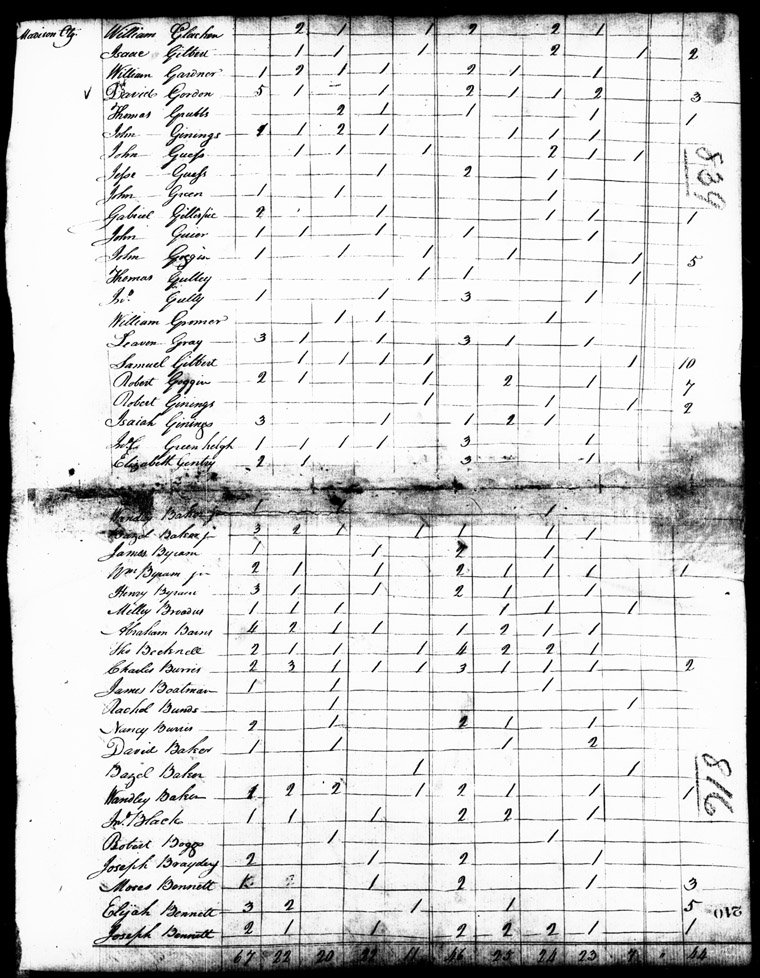 Madison Cty.
William Glacken 2 1 1 2 2 1
Isaac Gilbert 1 1 1 2 1 2
William Gardner 1 2 1 1 2 1 1
David Gordon 5 1 1 2 1 1 2 3
Thomas Grubbs 2 1 1 1 1
John Ginings 1 2 1 1 1 1
John Guess 1 1 1 2 1 1
Jesse Guess 1 2 1
John Green 1 1 1
Gabriel Gillespie 2 1 1 1 1
John Guier 1 1 1 1 1
John Goggin 1 1 1 1 1 5
Thomas Gulley 1 1 1
Jno. Gully 1 1 3 1
William Gromer 1 1 1
Leaven Gray 3 1 1 3 1 1
Samuel Gilbert 1 1 1 1 1 10
Robert Goggin 2 1 1 2 1 7
Robert Ginings 1 1 1 2
Isaiah Ginings 3 1 1 2 1
Green helgh 1 1 1 1 3 1
Elizabeth Gentry 2 1 3 1
839
Wandley Baker jr 1 1 1
Bazel Baker jr 3 2 1 1 1 1 1
James Byram 1 1 2 1
Wm Byram jr 2 1 1 2 1 1 1 1
Henry Byram 3 1 1 2 1 1
Milley Broadus 1 1 1 1 1 1
Abraham Barns 4 2 1 1 1 2 1 1
Tho Becknell 2 1 1 1 4 2 2 1
Charles Burris 2 3 1 1 1 3 1 1 1 2
James Boatman 1 1 1
Rachel Bunds 1 1
Nancy Burris 2 1 2 1 1
David Baker 1 1 1 2
Bazel Baker 1 1
Wandley Baker 2 2 1 2 1 1 1
Jno. Black 1 1 1 2 2 1
Robert Boggs 1 1
Joseph Braydey 2 1 2 1
Moses Bennett 1 2 1 3
Elijah Bennett 3 2 1 1 5
Joseph Bennett 2 1 1 2 2 2 1 1
816
210
67 22 20 22 11 46 25 24 23 7 44